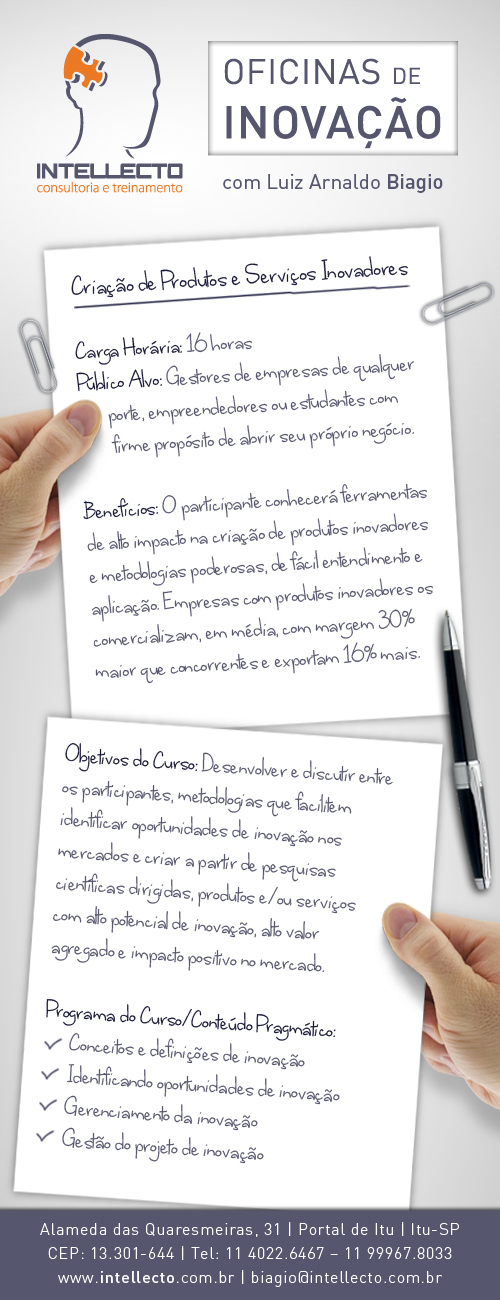 INTELLECTO
consultoria e treinamento
OFICINAS DE
INOVAÇÃO
com Luiz Arnaldo Biagio
Criação de Produtos e Serviços Inovadores
Carga Horária: 16 horas
Público Alvo: Gestores de empresas de qualquer
porte, empreendedores ou estudantes com
firme propósito de abrir seu próprio negócio.
Benefícios: O participante conhecerá ferramentas
de alto impacto na criação de produtos inovadores
e metodologias poderosas, de fácil entendimento e
aplicação. Empresas com produtos inovadores os
comercializam, em média, com margem 30%
maior que concorrentes e exportam 16% mais.
Objetivos do Curso: Desenvolver e discutir entre
os participantes, metodologias que facilitem
identificar oportunidades de inovação nos
mercados e criar a partir de pesquisas
científicas dirigidas, produtos e/ou serviços
com alto potencial de inovação, alto valor
agregado e impacto positivo no mercado.
Programa do Curso/Conteúdo Pragmático:
Conceitos e definições de inovação
Identificando oportunidades de inovação
Gerenciamento da inovação
Gestão do projeto de inovação
Alameda das Quaresmeiras, 31 | Portal de Itu | Itu-SP
CEP: 13.301-644 | Tel: 11 4022.6467 – 11 99967.8033
www.intellecto.com.br | biagio@intellecto.com.br